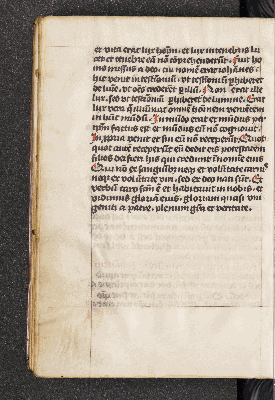 et vita erat lux hoīm: et lux in tenebris lu
cet et tenebre eā nō cōprehenderūt. Fuit ho
mo missus a deo: cui nomē erat iohānes.
hic venit in testīoniū: vt testīoniū phiberet
de lūīe, vt oēs crederēt p illū. Non erat ille
lux, sed vt testīoniū phiberet de lumine. Erat
lux vera q̄ illuīat omnē hoīem venientem
in hūc mūdū. In mūdo erat et mūdus per
ipm̄ factus est et mūdus eū nō cognouit.
In ppria venit et sui eū nō receperūt. Quot
quot autē receperūt eū dedit eis potestatem
filios dei fieri his qui credunt ī nomīe eius
Qui nō ex sanguībus neqȝ ex volūtate carnis
neqȝ ex volūtate viri, sed ex deo nati sūt. Et
verbū caro factū ē et habitauit in nobis, et
vidimus gloriā eius, gloriam quasi vni
geniti a patre, plenum grē et veritate.